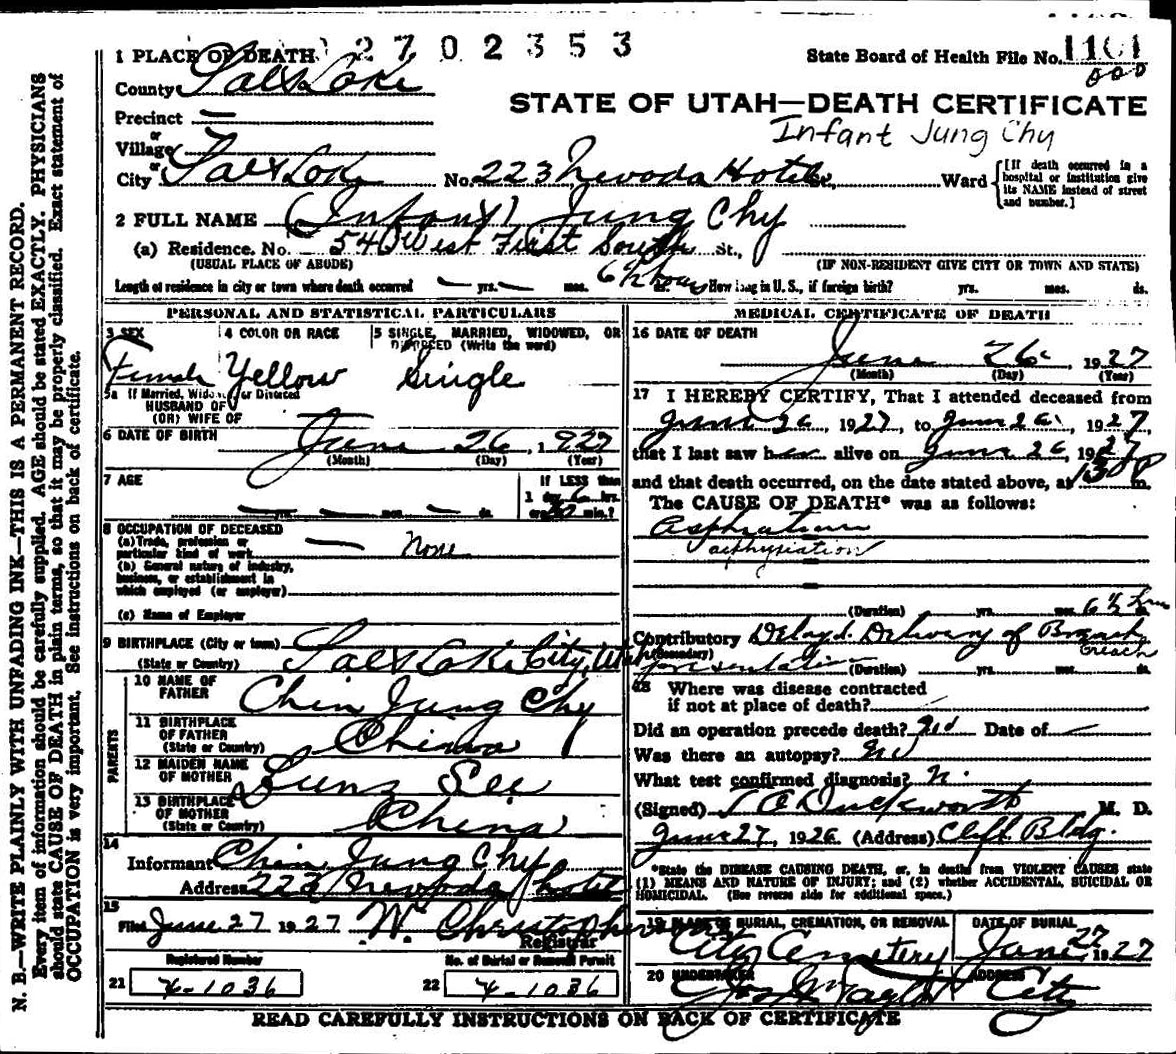 N. B.—WRITE PLAINLY WITH UNFADING INK—THIS IS A PERMANENT RECORD.
Every item of information should be carefully supplied. AGE should be stated EXACTLY. PHYSICIANS
should state CAUSE OF DEATH in plain terms, so that it may be properly classified. Exact statement of
OCCUPATION is very important. See instructions on back of certificate.
1 PLACE OF DEATH 2702353
State Board of Health File No. 1101
County Salt Lake
STATE OF UTAH—DEATH CERTIFICATE
Precinct —
Infant Jung Chy
or
Village
or
City Salt Lake No. 223 Nevada Hotel St., Ward
[If death occurred in a
hospital or institution give
its NAME instead of street
and number.]
2 FULL NAME (Infant) Jung Chy
(a) Residence. No. 540 West First South St.,
(USUAL PLACE OF ABODE)
(IF NON-RESIDENT GIVE CITY OR TOWN AND STATE)
Length of residence in city or town where death occurred — yrs. — mos. 6½ hours ds. How long in U. S., if foreign birth? yrs. mos. ds.
PERSONAL AND STATISTICAL PARTICULARS
3 SEX
Female
4 COLOR OR RACE
Yellow
5 SINGLE, MARRIED, WIDOWED, OR
DIVORCED (Write the word)
Single
5a If Married, Widowed, or Divorced
HUSBAND OF
(OR) WIFE OF
6 DATE OF BIRTH June 26, 1927
(Month) (Day) (Year)
7 AGE
If LESS than
1 day 6 hrs.
or 30 min.?
— yrs. — mos. — ds.
8 OCCUPATION OF DECEASED
(a) Trade, profession or
particular kind of work — None
(b) General nature of industry,
business, or establishment in
which employed (or employer)
(c) Name of Employer
9 BIRTHPLACE (City or town) Salt Lake City, Utah
(State or Country)
PARENTS
10 NAME OF
FATHER Chin Jung Chy
11 BIRTHPLACE
OF FATHER China
(State or Country)
12 MAIDEN NAME
OF MOTHER Lung See
13 BIRTHPLACE
OF MOTHER China
(State or Country)
14
Informant Chin Jung Chy
Address 223 Nevada Hotel
15
Filed June 27 1927 W. Christopherson
Registrar
Registered Number
21 4-1036
No. of Burial or Removal Permit
22 4-1036
MEDICAL CERTIFICATE OF DEATH
16 DATE OF DEATH
June 26, 1927
(Month) (Day) (Year)
17 I HEREBY CERTIFY, That I attended deceased from
June 26, 1927, to June 26, 1927,
that I last saw her alive on June 26, 1927
and that death occurred, on the date stated above, at 130P m.
The CAUSE OF DEATH* was as follows:
asphyxiation
(Duration) yrs. mos. 6½ hrs
Contributory Delayed Delivery of Breach
(Secondary)
Breach
presentation (Duration) yrs. mos. ds.
18 Where was disease contracted
if not at place of death?
Did an operation precede death? No Date of —
Was there an autopsy? No
What test confirmed diagnosis?
(Signed) Duckworth M. D.
June 27, 1926 (Address) Clift Bldg.
*State the DISEASE CAUSING DEATH, or, in deaths from VIOLENT CAUSES state
(1) MEANS AND NATURE OF INJURY; and (2) whether ACCIDENTAL, SUICIDAL OR
HOMICIDAL. (See reverse side for additional space.)
19 PLACE OF BURIAL, CREMATION, OR REMOVAL
City Cemetery
DATE OF BURIAL
June 27 1927
20 UNDERTAKER
Taylor
ADDRESS
City
READ CAREFULLY INSTRUCTIONS ON BACK OF CERTIFICATE